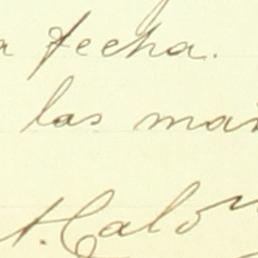 a fecha.
las man
A. Calo